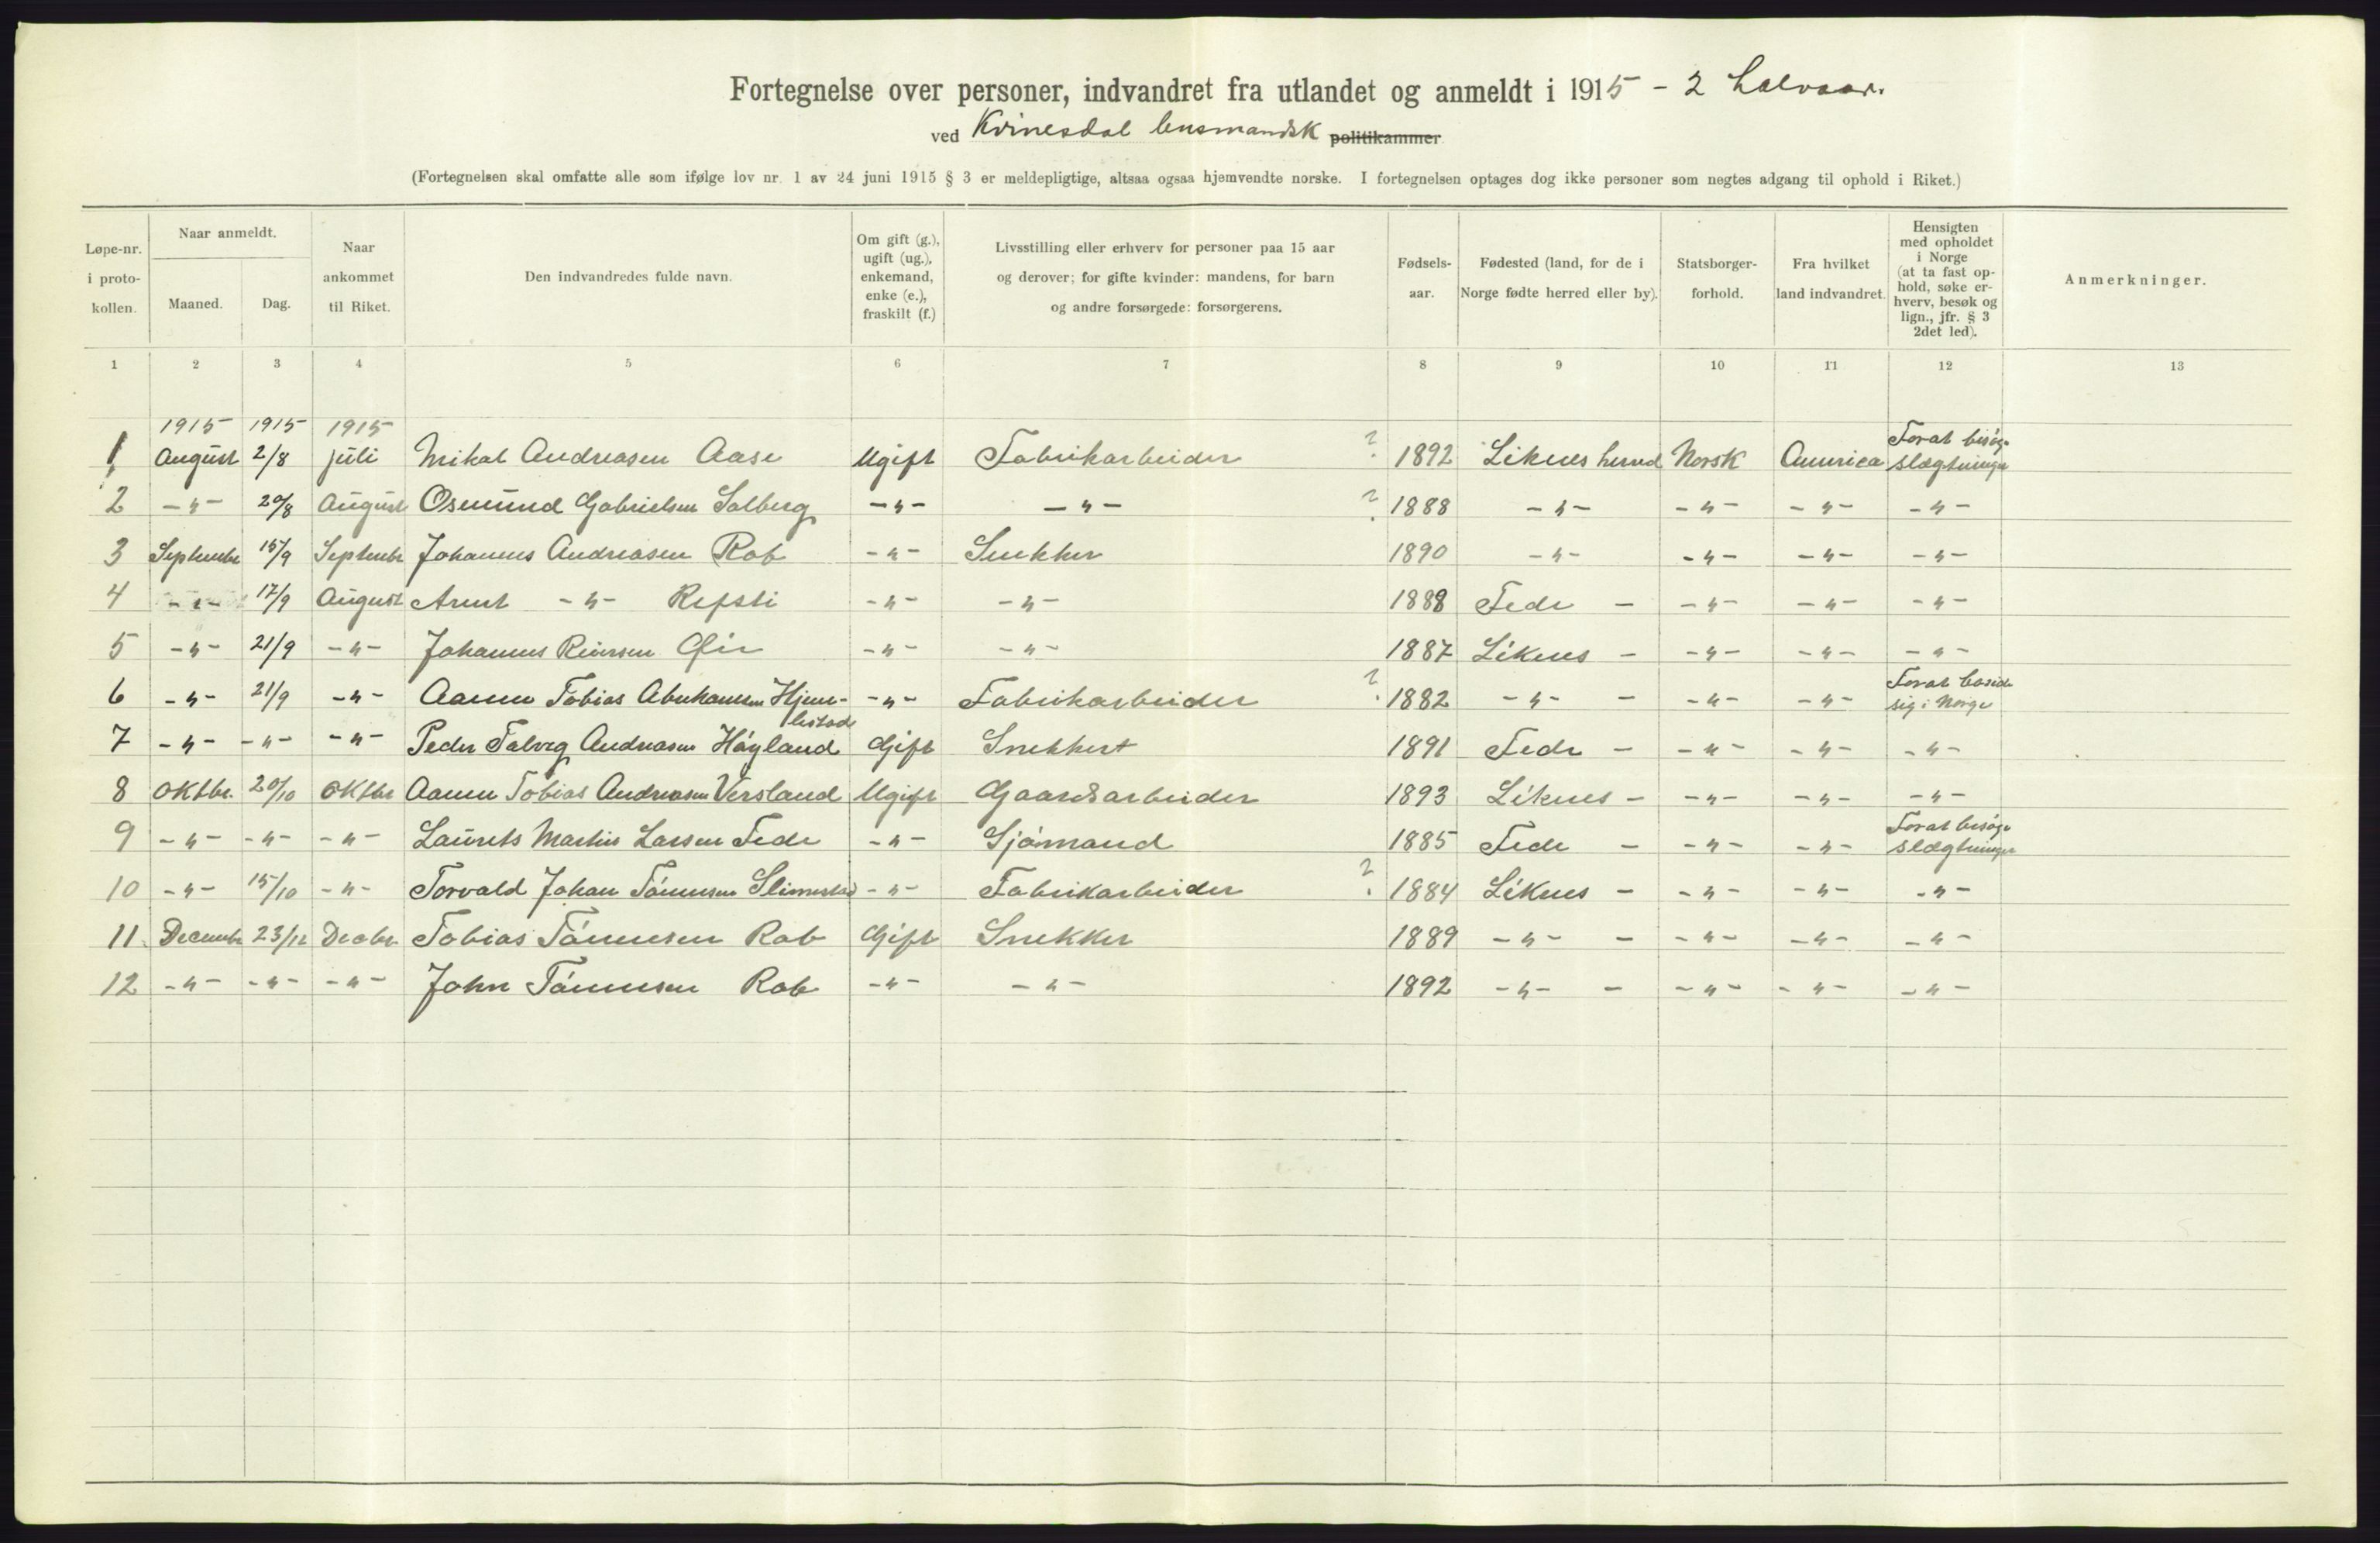 Fortegnelse over personer, indvandret fra utlandet og anmeldt i 1915 - 2 halvaar.
ved Kvinesdal lensmandsk politikammer
(Fortegnelsen skal omfatte alle som ifølge lov nr. 1 av 24 juni 1915 § 3 er meldepligtige, altsaa ogsaa hjemvendte norske. I fortegnelsen optages dog ikke personer som negtes adgang til ophold i Riket.)
Løpe-nr. i proto-kollen.
Naar anmeldt.
Maaned.
Dag.
Naar ankommet til Riket.
Den indvandredes fulde navn.
Om gift (g.), ugift (ug.), enkemand, enke (e.), fraskilt (f.)
Livsstilling eller erhverv for personer paa 15 aar og derover; for gifte kvinder: mandens, for barn og andre forsørgede: forsørgerens.
Fødsels-aar.
Fødested (land, for de i Norge fødte herred eller by).
Statsborger-forhold.
Fra hvilket land indvandret.
Hensigten med opholdet i Norge (at ta fast op-hold, søke er-hverv, besøk og lign., jfr. § 3 2det led).
Anmerkninger.
1 2 3 4 5 6 7 8 9 10 11 12 13
1915 1915 1915
1 August 2/8 juli Mikal Andreasen Aase Ugift Fabrikarbeider ? 1892 Liknes herred Norsk America For at besøge slægtninge
2 -"- 20/8 August Osmund Gabrielsen Solberg -"- -"- ? 1888 -"- -"- -"- -"-
3 Septembr 15/9 Septembr Johannes Andreasen Rob -"- Snekker 1890 -"- -"- -"- -"-
4 -"- 17/9 August Arent -"- Refsti -"- -"- 1888 Fede - -"- -"- -"-
5 -"- 21/9 -"- Johannes Reiersen Øie -"- -"- 1887 Liknes - -"- -"- -"-
6 -"- 21/9 -"- Aanen Tobias Abrahamsen Hjem-lestad -"- Fabrikarbeider ? 1882 -"- - -"- -"- For at bosede sig i Norge
7 -"- -"- -"- Peder Andreasen Høyland Gift Snekker 1891 Fede - -"- -"- -"-
8 Oktbr. 20/10 Oktbr Aanen Tobias Andreasen Versland Ugift Gaardsarbeider 1893 Liknes - -"- -"- -"-
9 -"- -"- -"- Laurits Martin Larsen Fede -"- Sjømand 1885 Fede - -"- -"- For at besøge slægtninge
10 -"- 15/10 -"- Torvald Johan Tønnesen Slimestad -"- Fabrikarbeider ? 1884 Liknes - -"- -"- -"-
11 Decembr 23/12 Decbr. Tobias Tønnesen Rob Gift Snekker 1889 -"- - -"- -"- -"-
12 -"- -"- -"- John Tønnesen Rob -"- -"- 1892 -"- - -"- -"- -"-